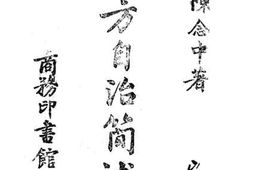 陳念中著
方自治简
商務印書館